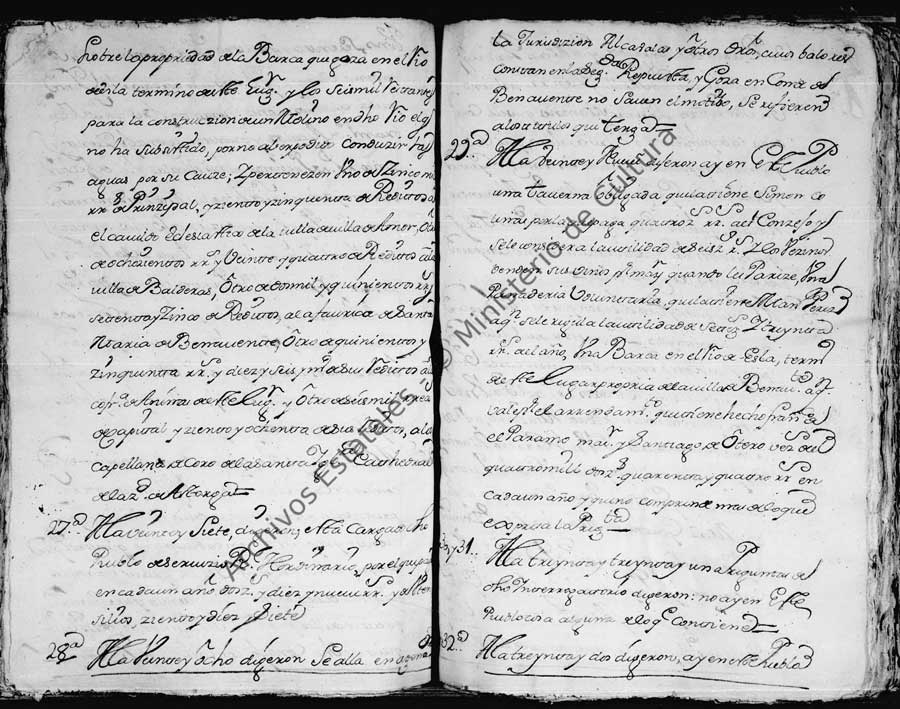 sobre la propriedad de la Barca que goza en el Rio
de esla termino de este Lugr. y los seis mil restantes
para la construczion de un Molino en dho Rio el qe
no ha subsistido, por no aber podido conduzir las
aguas por su Cauze; Zperteneze
rrs. de Prinzipal, y ziento y zinquenta de Reditos al
el cavildo Eclesiastico de la villa de Villa de
de ochozientos rrs. y Veinte y quatro de Reditos a la
villa de Balderas, Otro de dos mil y quinientos rrs. y
setenta y Zinco de Reditos, a la fabrica de Santa
Maria de Benavente, Otro de quinientos y
zinquenta rrs. y diez y seis y mo. de sus Reditos a la
cofra. de Animas de este Lugr. y Otro de seis mil rrs. de
Capital y ziento y ochenta de sus reditos, a la
Capellania de Coro de la Santa Iga. Cathedral
de la zd. de Astorga
27.a A la veinte y Siete, dijeron; esta Cargado dho
Pueblo de servizio Rl. Hordinario, por el que paga
en cada un año doz. y diez y nueve rrs. y de Uten
silios, ziento y diez y siete
28.a A la Veinte y ocho dijeron se alla enagenada
la Jurisdizion Alcavalas y otros dros, cuios balores
constan en la Seg.da Repuesta, y Goza en Conde de
Benavente no Saven el motivo, se refieren
a los titulos que tenga
29.a A la Veinte y Nueve dijeron ay en este Pueblo
una taverna Obligada que la tiene Simon
por la que paga quatroz. rrs. al Conzejo y
se le considera la utilidad de seisz. rrs. Y los Vezinos
benden sus vinos pr. maior quando les Pareze, Una
Panaderia Voluntaria, que la tiene Perez
a qn. se le regula la utilidad de setez. Y treynta
rrs. al año, Una Barca en el Rio de Esla, termo.
de este Lugar propria de la villa de Benavte. a qn.
vale pr. el arrendamto. que tiene hecho franco. de
el Paramo maior y Santiago de Otero vezs. de el
quatro mill doz. quarenta y quatro rrs. en
cada un año y que no comprende mas de lo que
expresa la Prega.
30. y 31. A la treynta y treynta y una Preguntas de
dho Ynterrogatorio dijeron: no ay en este
Pueblo cosa alguna de lo qe. Contienen
32.a A la treynta y dos dijeron, ay en este Pueblo
Archivos Estatales © Ministerio de Cultura